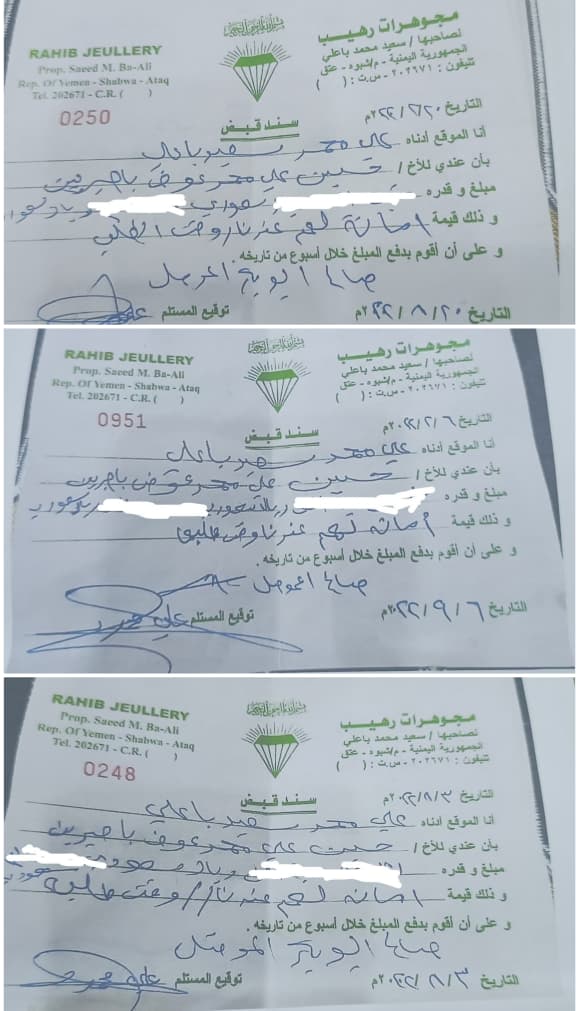 RAHIB JEULLERY
Prop. Saeed M. Ba-Ali
Rep. Of Yemen - Shabwa - Ataq
Tel. 202671 - C.R. ( )
0250
مجوهرات رهيب
لصاحبها / سعيد محمد باعلي
الجمهورية اليمنية - م/شبوه - عتق
تليفون : ٢٠٢٦٧١ - س.ت : ( )
سند قبض
التاريخ
أنا الموقع أدناه علي محمد سعيد باعلي
بأن عندي للأخ / حسين علي محمد عوض باصرين
مبلغ و قدره سعودي
و ذلك قيمة امانة لهم عندنا وقت الطلب
و على أن أقوم بدفع المبلغ خلال أسبوع من تاريخه .
التاريخ ٢٠ / ٨ / ٢٠٢٢م توقيع المستلم
RAHIB JEULLERY
Prop. Saeed M. Ba-Ali
Rep. Of Yemen - Shabwa - Ataq
Tel. 202671 - C.R. ( )
0951
مجوهرات رهيب
لصاحبها / سعيد محمد باعلي
الجمهورية اليمنية - م/شبوه - عتق
تليفون : ٢٠٢٦٧١ - س.ت : ( )
سند قبض
التاريخ
أنا الموقع أدناه علي محمد سعيد باعلي
بأن عندي للأخ / حسين علي محمد عوض باصرين
مبلغ و قدره
و ذلك قيمة أمانه لهم عندنا وقت طلبه
و على أن أقوم بدفع المبلغ خلال أسبوع من تاريخه .
التاريخ ٦ / ٩ / ٢٠٢٢م توقيع المستلم علي محمد
RAHIB JEULLERY
Prop. Saeed M. Ba-Ali
Rep. Of Yemen - Shabwa - Ataq
Tel. 202671 - C.R. ( )
0248
مجوهرات رهيب
لصاحبها / سعيد محمد باعلي
الجمهورية اليمنية - م/شبوه - عتق
تليفون : ٢٠٢٦٧١ - س.ت : ( )
سند قبض
التاريخ ٣ / ٨ / ٢٠٢٢م
أنا الموقع أدناه علي محمد سعيد باعلي
بأن عندي للأخ / حسين علي محمد عوض باصرين
مبلغ و قدره
و ذلك قيمة امانه لهم عندنا وقت طلبه
و على أن أقوم بدفع المبلغ خلال أسبوع من تاريخه .
التاريخ ٣ / ٨ / ٢٠٢٢م توقيع المستلم علي محمد